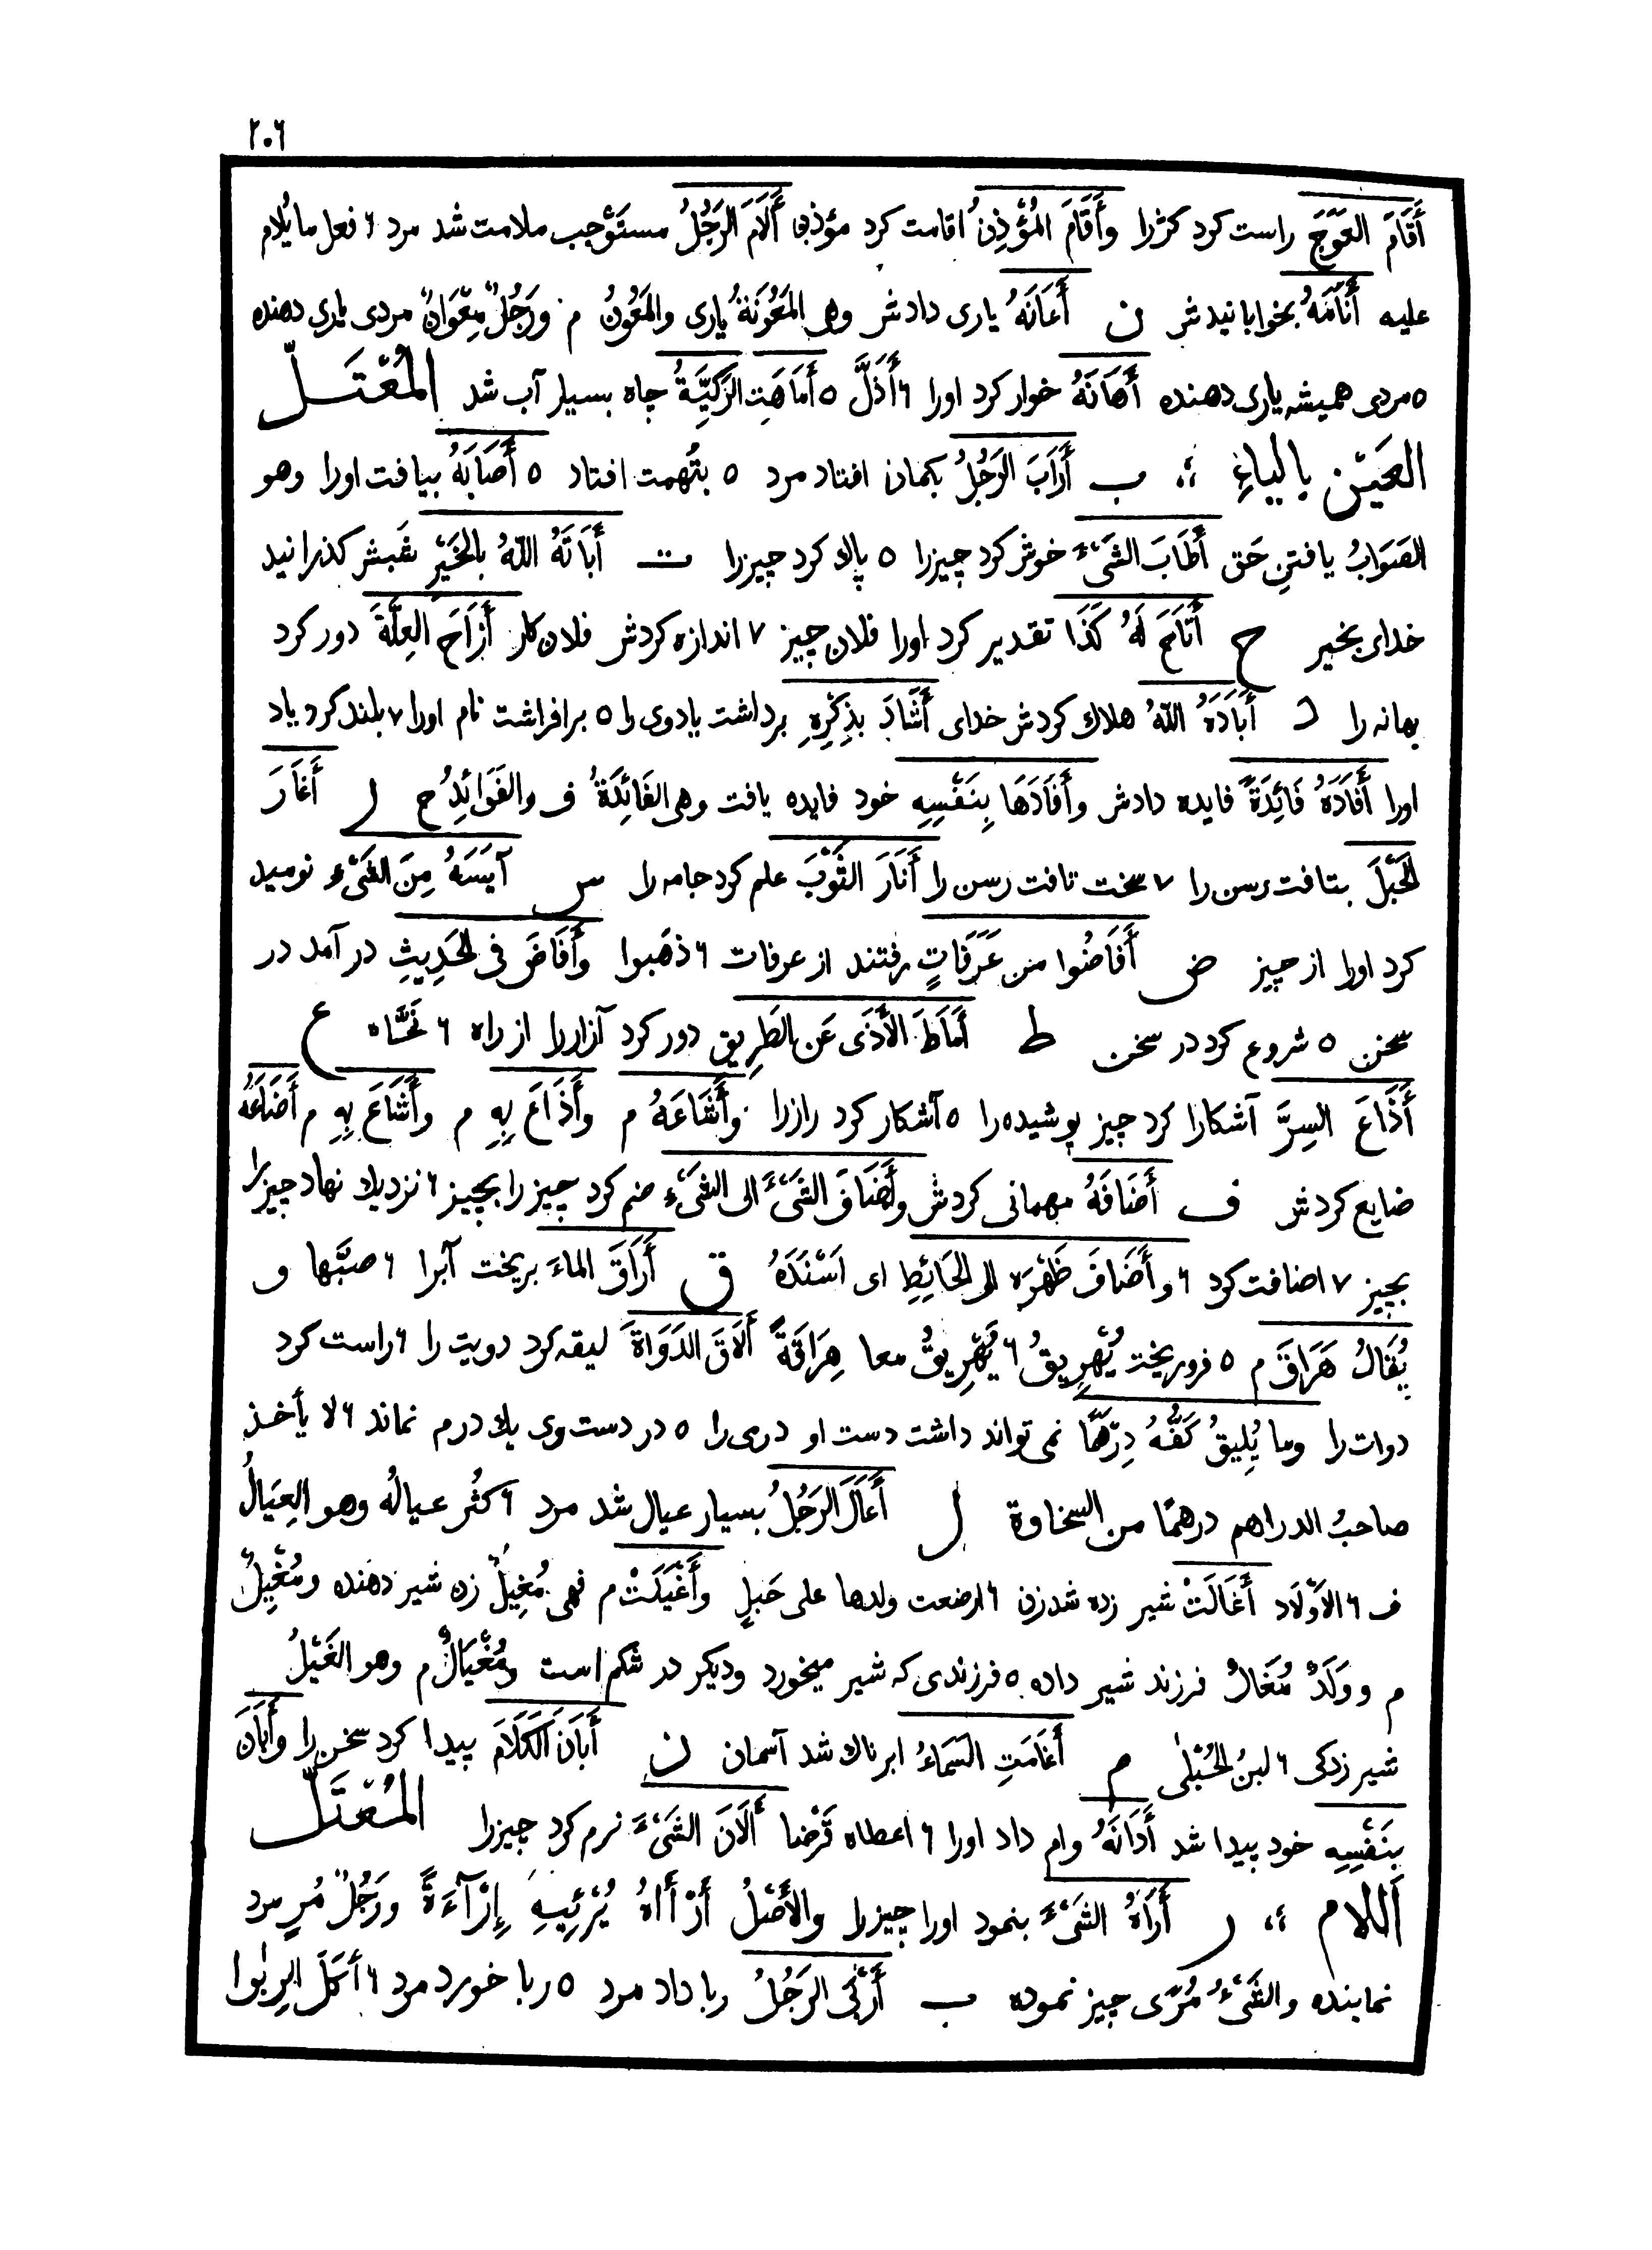 ٢٠٦
أَقَامَ العَوَجَ راست کرد کژرا وأَقَامَ المُؤَذِنُ اقامت کرد مؤذن أَلَامَ الرَجُلُ مستَوْجب ملامت شد مرد ٦ فعل ما یُلام
علیه أَنَامَهُ بخوابانیدش ن أَعَانَهُ یاری دادش وهی المَعُونَةُ یاری والمَعُونُ م ورَجُلٌ مِعْوَانٌ مردی یاری دهنده
٥ مردی همیشه یاری دهنده أَهَانَهُ خوار کرد اورا ٦ أَذَلَّ ٥ أَمَاهَتِ الرَّکِیَّةُ چاه بسیار آب شد المُعْتَـلّ
العَیْن بالیاءِ ؛، ب أَرَابَ الرَجُلُ بکمان افتاد مرد ٥ بتُهمت افتاد ٥ أَصَابَهُ بیافت اورا وهو
الصَوَابُ یافتنِ حَق أَطَابَ الشَیْءَ خوش کرد چیزرا ٥ پاك کرد چیزرا ت أَبَاتَهُ اللّهُ بالخَیْرِ شبش کذرانید
خدای بخیر ح أَتَاحَ لَهُ کَذَا تقدیر کرد اورا فلان چیز ٧ اندازه کردش فلان کار أَزَاحَ العِلَّةَ دور کرد
بهانه را د أَبَادَهُ اللّهُ هلاك کردش خدای أَشَادَ بِذِکْرِهِ برداشت یاد وی را ٥ برافراشت نام اورا ٧ بلند کرد یاد
اورا أَفَادَهُ فَائِدَةً فایده دادش وأَفَادَهَا بِنَفْسِهِ خود فایده یافت وهی الفَائِدَةُ ف والفَوَائِدُ ح ر أَغَارَ
الحَبْلَ بتافت رسن را ٧ سخت تافت رسن را أَنَارَ الثَوْبَ علم کرد جامه را س آیَسَهُ مِنَ الشَیْءِ نومید
کرد اورا از چیز ض أَفَاضُوا من عَرَفَاتٍ رفتند از عرفات ٦ ذهَبوا وأَفَاضَ فی الحَدِیثِ در آمد در
سخن ٥ شروع کرد در سخن ط أَمَاطَ الأَذَی عَنِ الطَرِیقِ دور کرد آزاررا از راه ٦ نَحَّاه ع
أَذَاعَ السِرَّ آشکارا کرد چیز پوشیده را ٥ آشکار کرد رازرا وأَشَاعَهُ م وأَذَاعَ بِهِ م وأَشَاعَ بِهِ م أَضَاعَهُ
ضایع کردش ف أَضَافَهُ مهمانی کردش وأَضَافَ الشَیْءَ الی الشَیْءِ ضم کرد چیز را بچیز ٦ نزدیك نهاد چیزرا
بچیز ٧ اضافت کرد ٦ وأَضَافَ ظَهْرَه الی الحَائِطِ ای اَسْنَدَهُ ق أَرَاقَ الماءَ بریخت آبرا ٦ صبَّها و
یُقَالُ هَرَاقَ م ٥ فرو ریخت یُهْرِیقُ ٦ یُهَرِیقُ معا هِرَاقَةً أَلَاقَ الدَوَاةَ لیقه کرد دویت را ٦ راست کرد
دوات را وما یُلِیقُ کَفُّهُ دِرْهَمًا نمی تواند داشت دست او درمی را ٥ در دست وی یك درم نماند ٦ لا یأخـذ
صاحبُ الدراهم درهمًا من السخاوة ل أَعَالَ الرَجُلُ بسیار عیال شد مرد ٦ کثُر عیالُه وهو العِیَالُ
ف ٦ الأَوْلَاد أَغَالَتْ شیر زده شد زن ٦ ارضعت ولدها علی حَبلٍ وأَغْیَلَتْ م فهی مُغِیلٌ زن شیر دهنده ومُغْیِلٌ
م ووَلَدٌ مُغَالٌ فرزند شیر داده ٥ فرزندی که شیر میخورد ودیکر در شکم است ومُغْیَالٌ م وهو الغَیْلُ
شیر زدکی ٦ لبنُ الحُبْلٰی م أَغَامَتِ السَمَاءُ ابرناك شد آسمان ن أَبَانَ الکَلَامَ پیدا کرد سخن را وأَبَانَ
بِنَفْسِهِ خود پیدا شد أَدَانَهُ وام داد اورا ٦ اعطاه قَرْضا أَلَانَ الشَیْءَ نرم کرد چیزرا المُعْتَـلّ
اَللام ؛، ر أَرَاهُ الشَیْءَ بنمود اورا چیزرا والأَصْلُ أَرْأَاهُ یُرْئِیهِ إِرْآءَةً ورَجُلٌ مُرٍ مرد
نماینده والشَیْءُ مُرًی چیز نموده ب أَرْبَی الرَجُلُ ربا داد مرد ٥ ربا خورد مرد ٦ أکَلَ الرِبٰوا